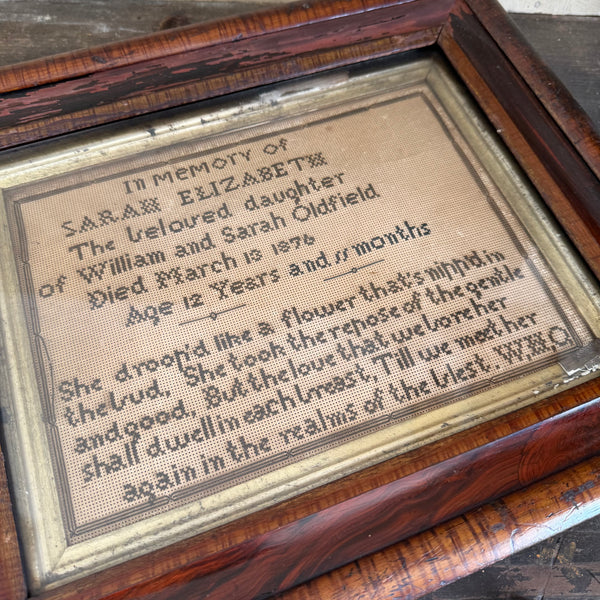 In Memory of
SARAH ELIZABETH
The beloved daughter
of William and Sarah Oldfield
Died March 13 1876
Age 12 Years and 11 months
She droop'd like a flower that's nipp'd in
the bud, She took the repose of the gentle
and good, But the love that we bore her
shall dwell in each breast, Till we meet her
again in the realms of the blest. W, H O